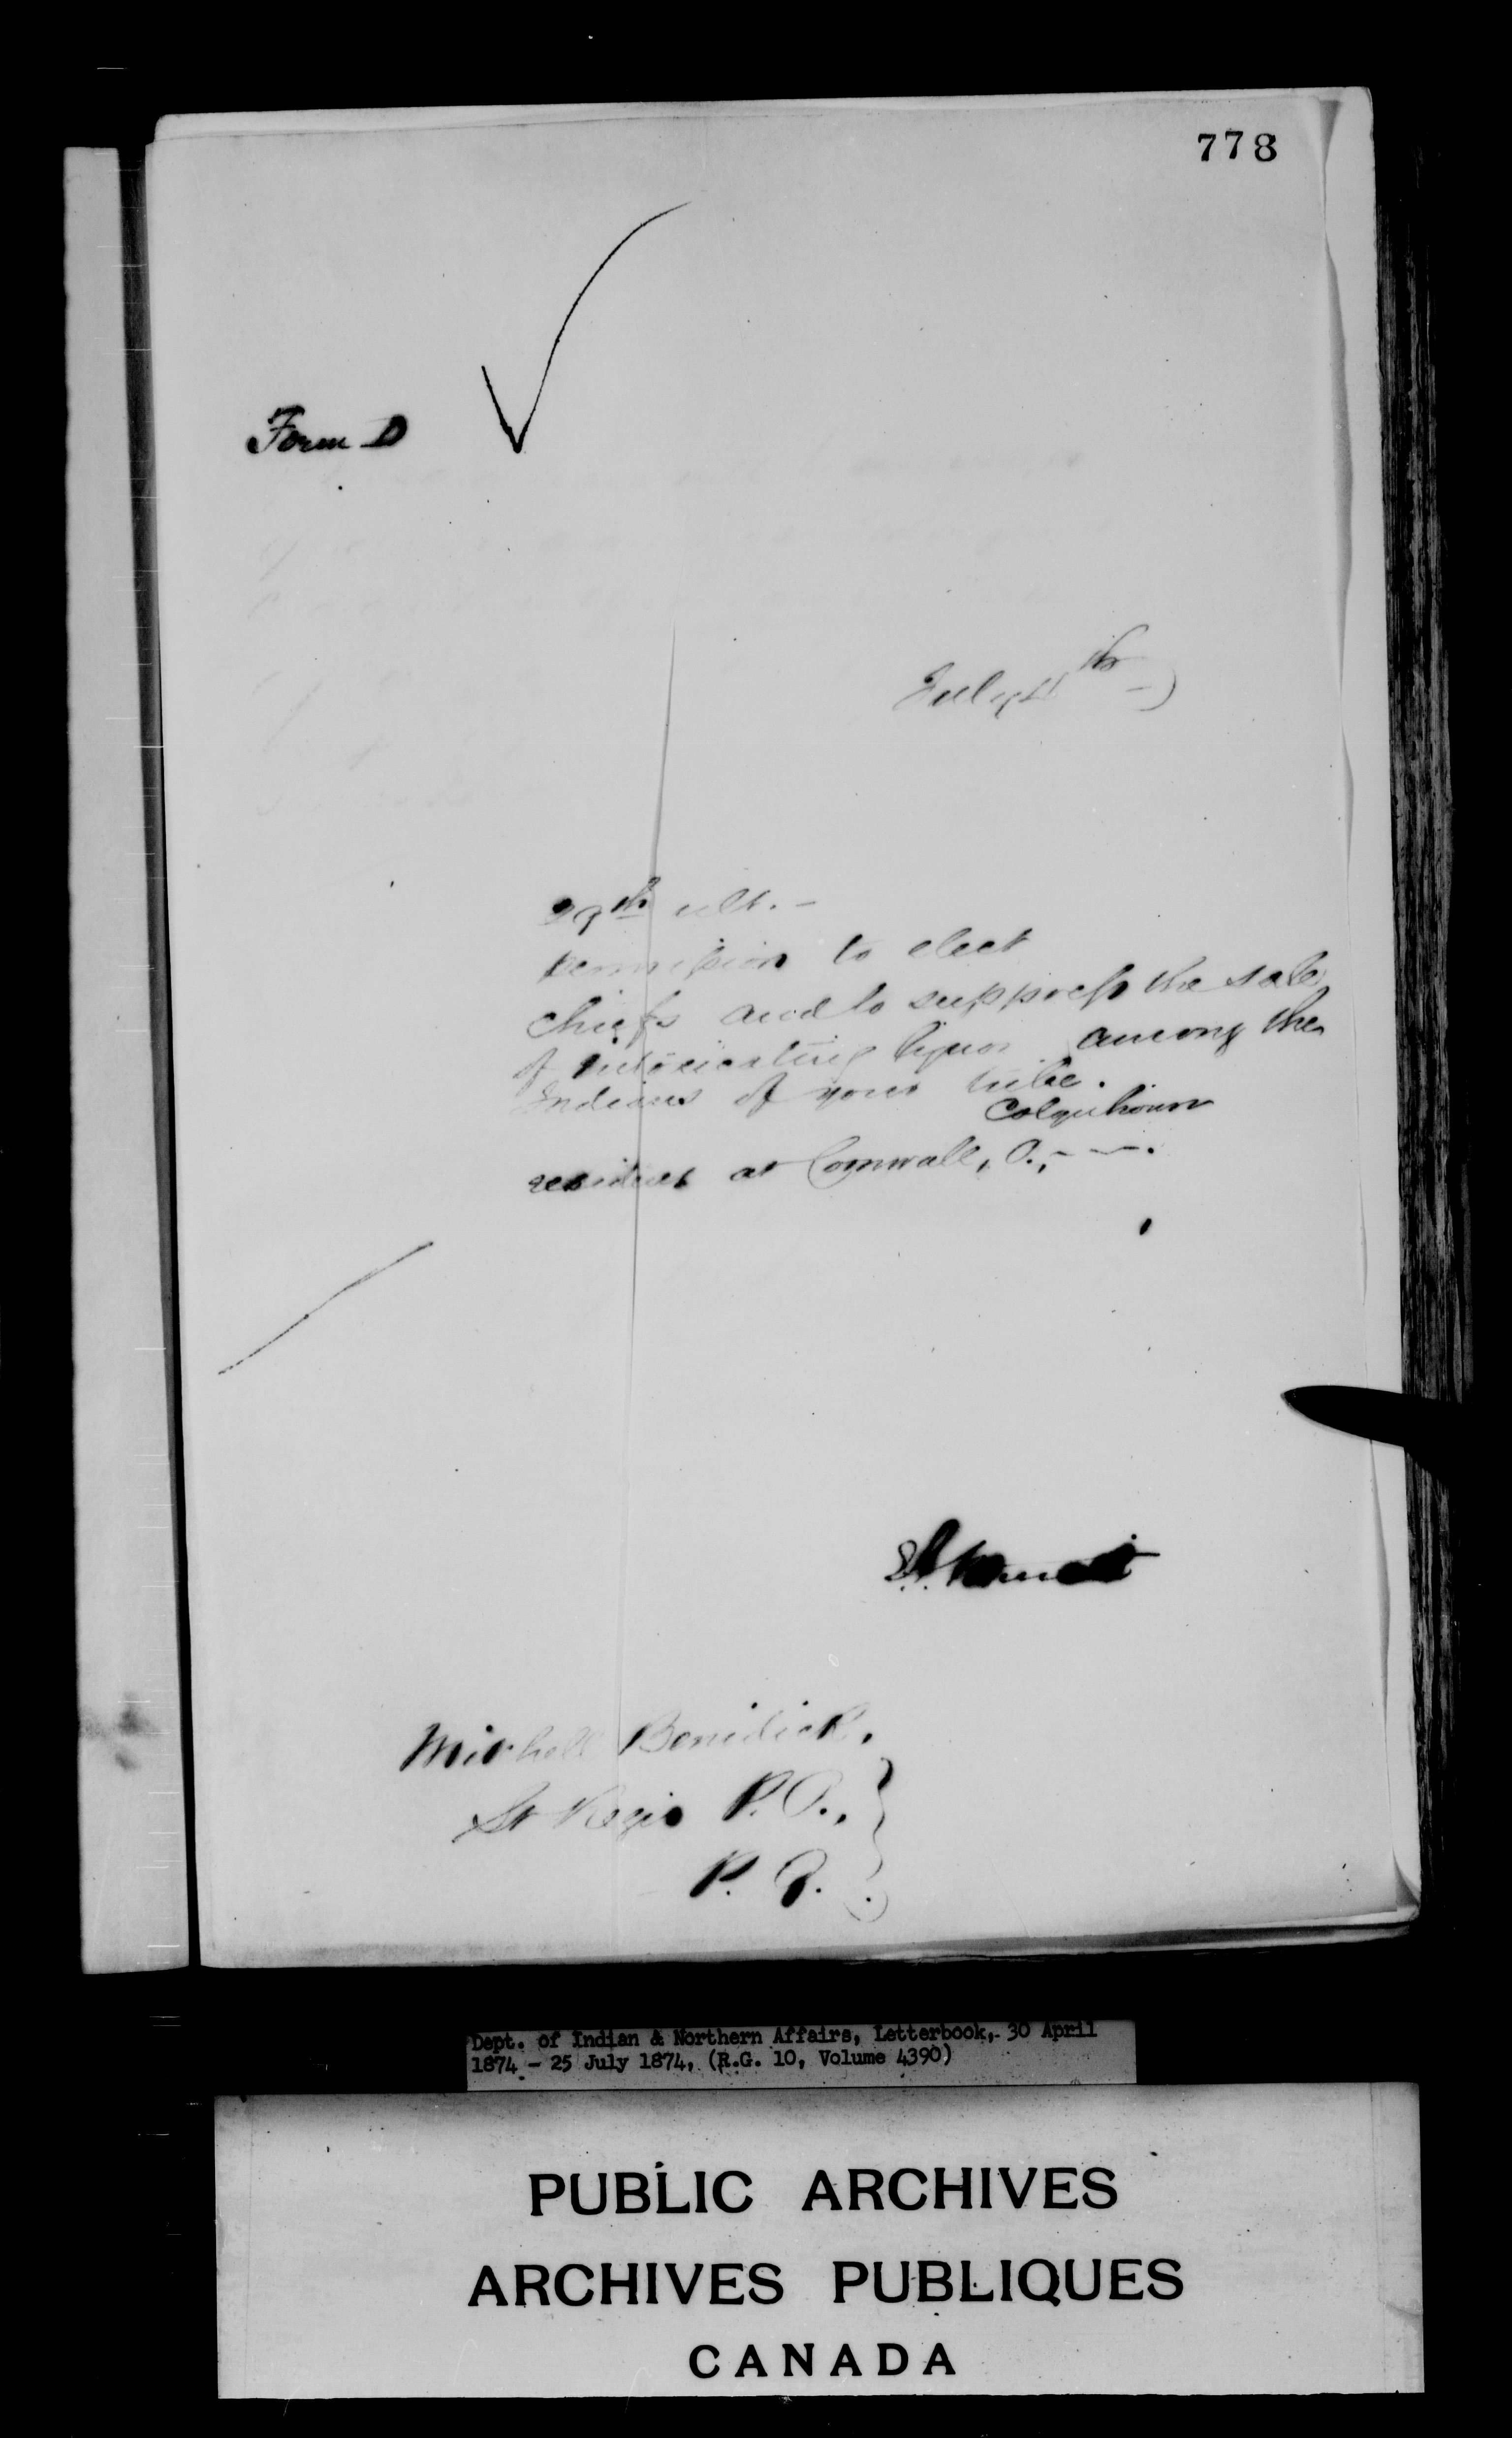 778
Form D
July
29th ult. -
permission to elect
chiefs and to suppress the sale
of intoxicating liquor among the
Indians of your tribe.
Colquhoun
resident at Cornwall, O., - -.
Michell Benidick,
St Regis P.O.,
P. Q.
Dept. of Indian & Northern Affairs, Letterbook, 30 April
1874 - 25 July 1874, (R.G. 10, Volume 4390)
PUBLIC ARCHIVES
ARCHIVES PUBLIQUES
CANADA